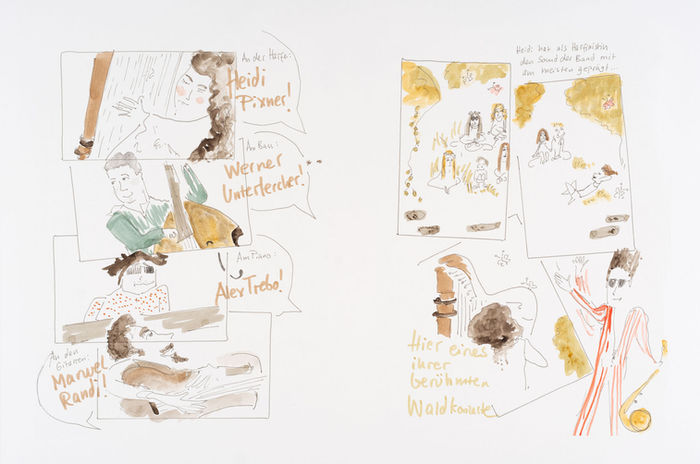 An der Harfe:
Heidi
Pixner!
Am Bass:
Werner
Unterlercher!
Am Piano:
Alex Trebo!
An den
Gitarren:
Manuel
Randi!
Heidi hat als Harfinistin
den Sound der Band mit
am meisten geprägt...
Hier eines
ihrer
berühmten
Waldkonzerte